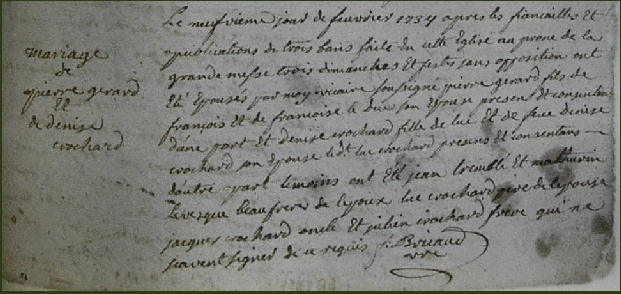 mariage
de
pierre gerard
Et
de denise
crochard
Le neufvieme jour de feuvrier 1734 apres les fiancailles Et
publications de trois bans faite En cette Eglise au prone de la
grande messe trois dimanches Et festes sans opposition ont
Eté Epousés par moy vicaire soussigné pierre gerard fils de
françois Et de francoise le duc son Epouse presens Et consentans
d'une part Et denise crochard fille de luc Et de feue denise
crochard son Epouse ledt luc crochard presens et consentans
d'autre part temoins ont Eté jean tremblé Et mathurin
Levesque beaufrere de lepoux luc crochard pere de lepouse
jacques crochard oncle Et julien crochard frere qui ne
scavent signer de ce requis